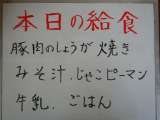 本日の給食
豚肉のしょうが焼き
みそ汁.じゃこピーマン
牛乳.ごはん